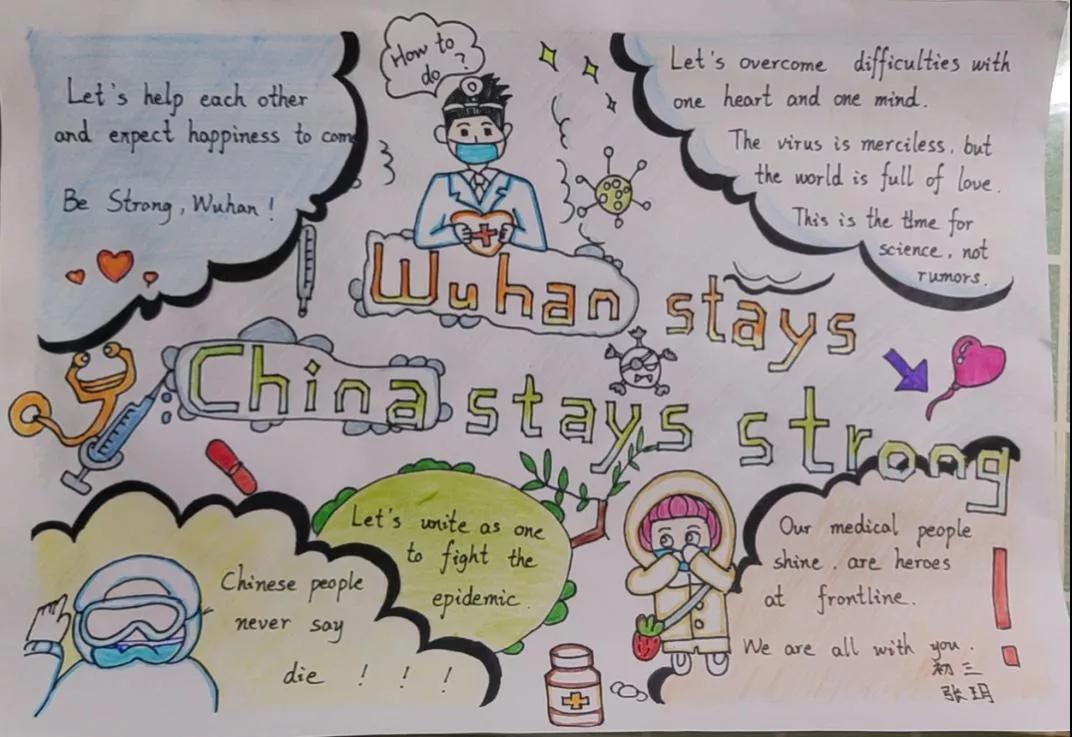 Let's help each other
and expect happiness to come
Be Strong, Wuhan !
How to
do ?
Let's overcome difficulties with
one heart and one mind.
The virus is merciless, but
the world is full of love.
This is the time for
science, not
rumors.
Wuhan stays
China stays strong
Chinese people
never say
die ! ! !
Let's unite as one
to fight the
epidemic.
Our medical people
shine , are heroes
at frontline.
We are all with you.
初三
张玥